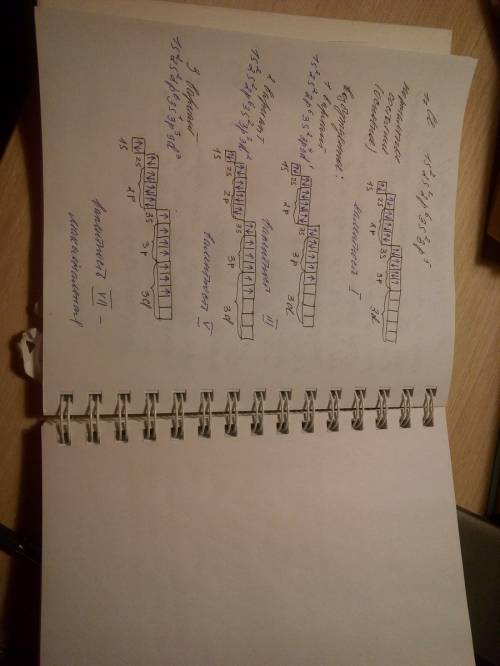 17 Cl 1s² 2s² 2p⁶ 3s² 3p⁵
нормальное
состояние
(основное)
1s 2s 2p 3s 3p 3d
валентность I
Возбужденный:
1 вариант
1s² 2s² 2p⁶ 3s² 3p⁴ 3d¹
1s 2s 2p 3s 3p 3d
валентность III
2 вариант
1s² 2s² 2p⁶ 3s² 3p³ 3d²
1s 2s 2p 3s 3p 3d
валентность V
3 вариант
1s² 2s² 2p⁶ 3s¹ 3p³ 3d³
1s 2s 2p 3s 3p 3d
валентность VII –
максимальная